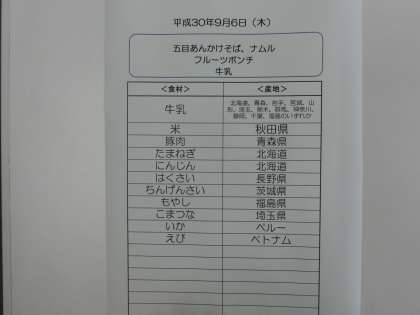 平成30年9月6日（木）
五目あんかけそば、ナムル
フルーツポンチ
牛乳
＜食材＞ ＜産地＞
牛乳 北海道、青森、岩手、宮城、山
形、埼玉、栃木、群馬、神奈川、
静岡、千葉、福島のいずれか
米 秋田県
豚肉 青森県
たまねぎ 北海道
にんじん 北海道
はくさい 長野県
ちんげんさい 茨城県
もやし 福島県
こまつな 埼玉県
いか ペルー
えび ベトナム